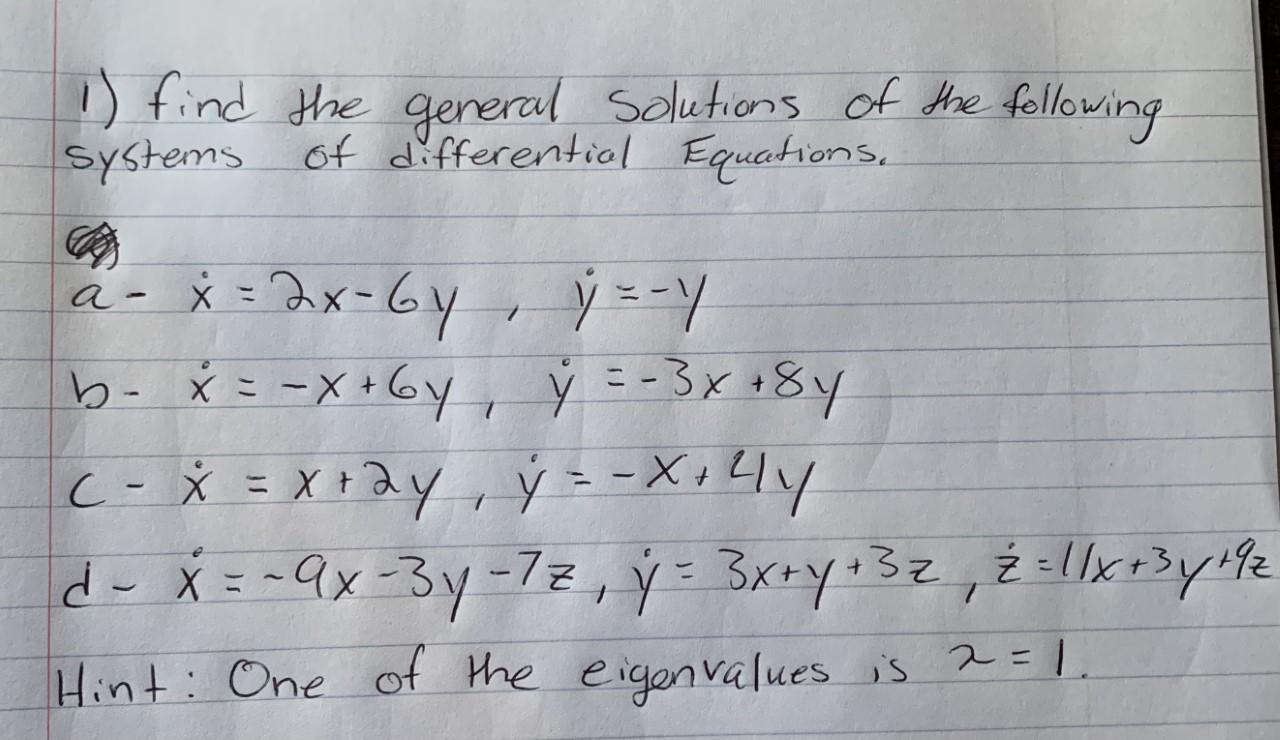 1) find the general Solutions of the following
systems of differential Equations.
a - ẋ = 2x - 6y , ẏ = -y
b - ẋ = -x + 6y , ẏ = -3x + 8y
c - ẋ = x + 2y , ẏ = -x + 4y
d - ẋ = -9x - 3y - 7z , ẏ = 3x + y + 3z , ż = 11x + 3y + 9z
Hint: One of the eigenvalues is λ = 1.